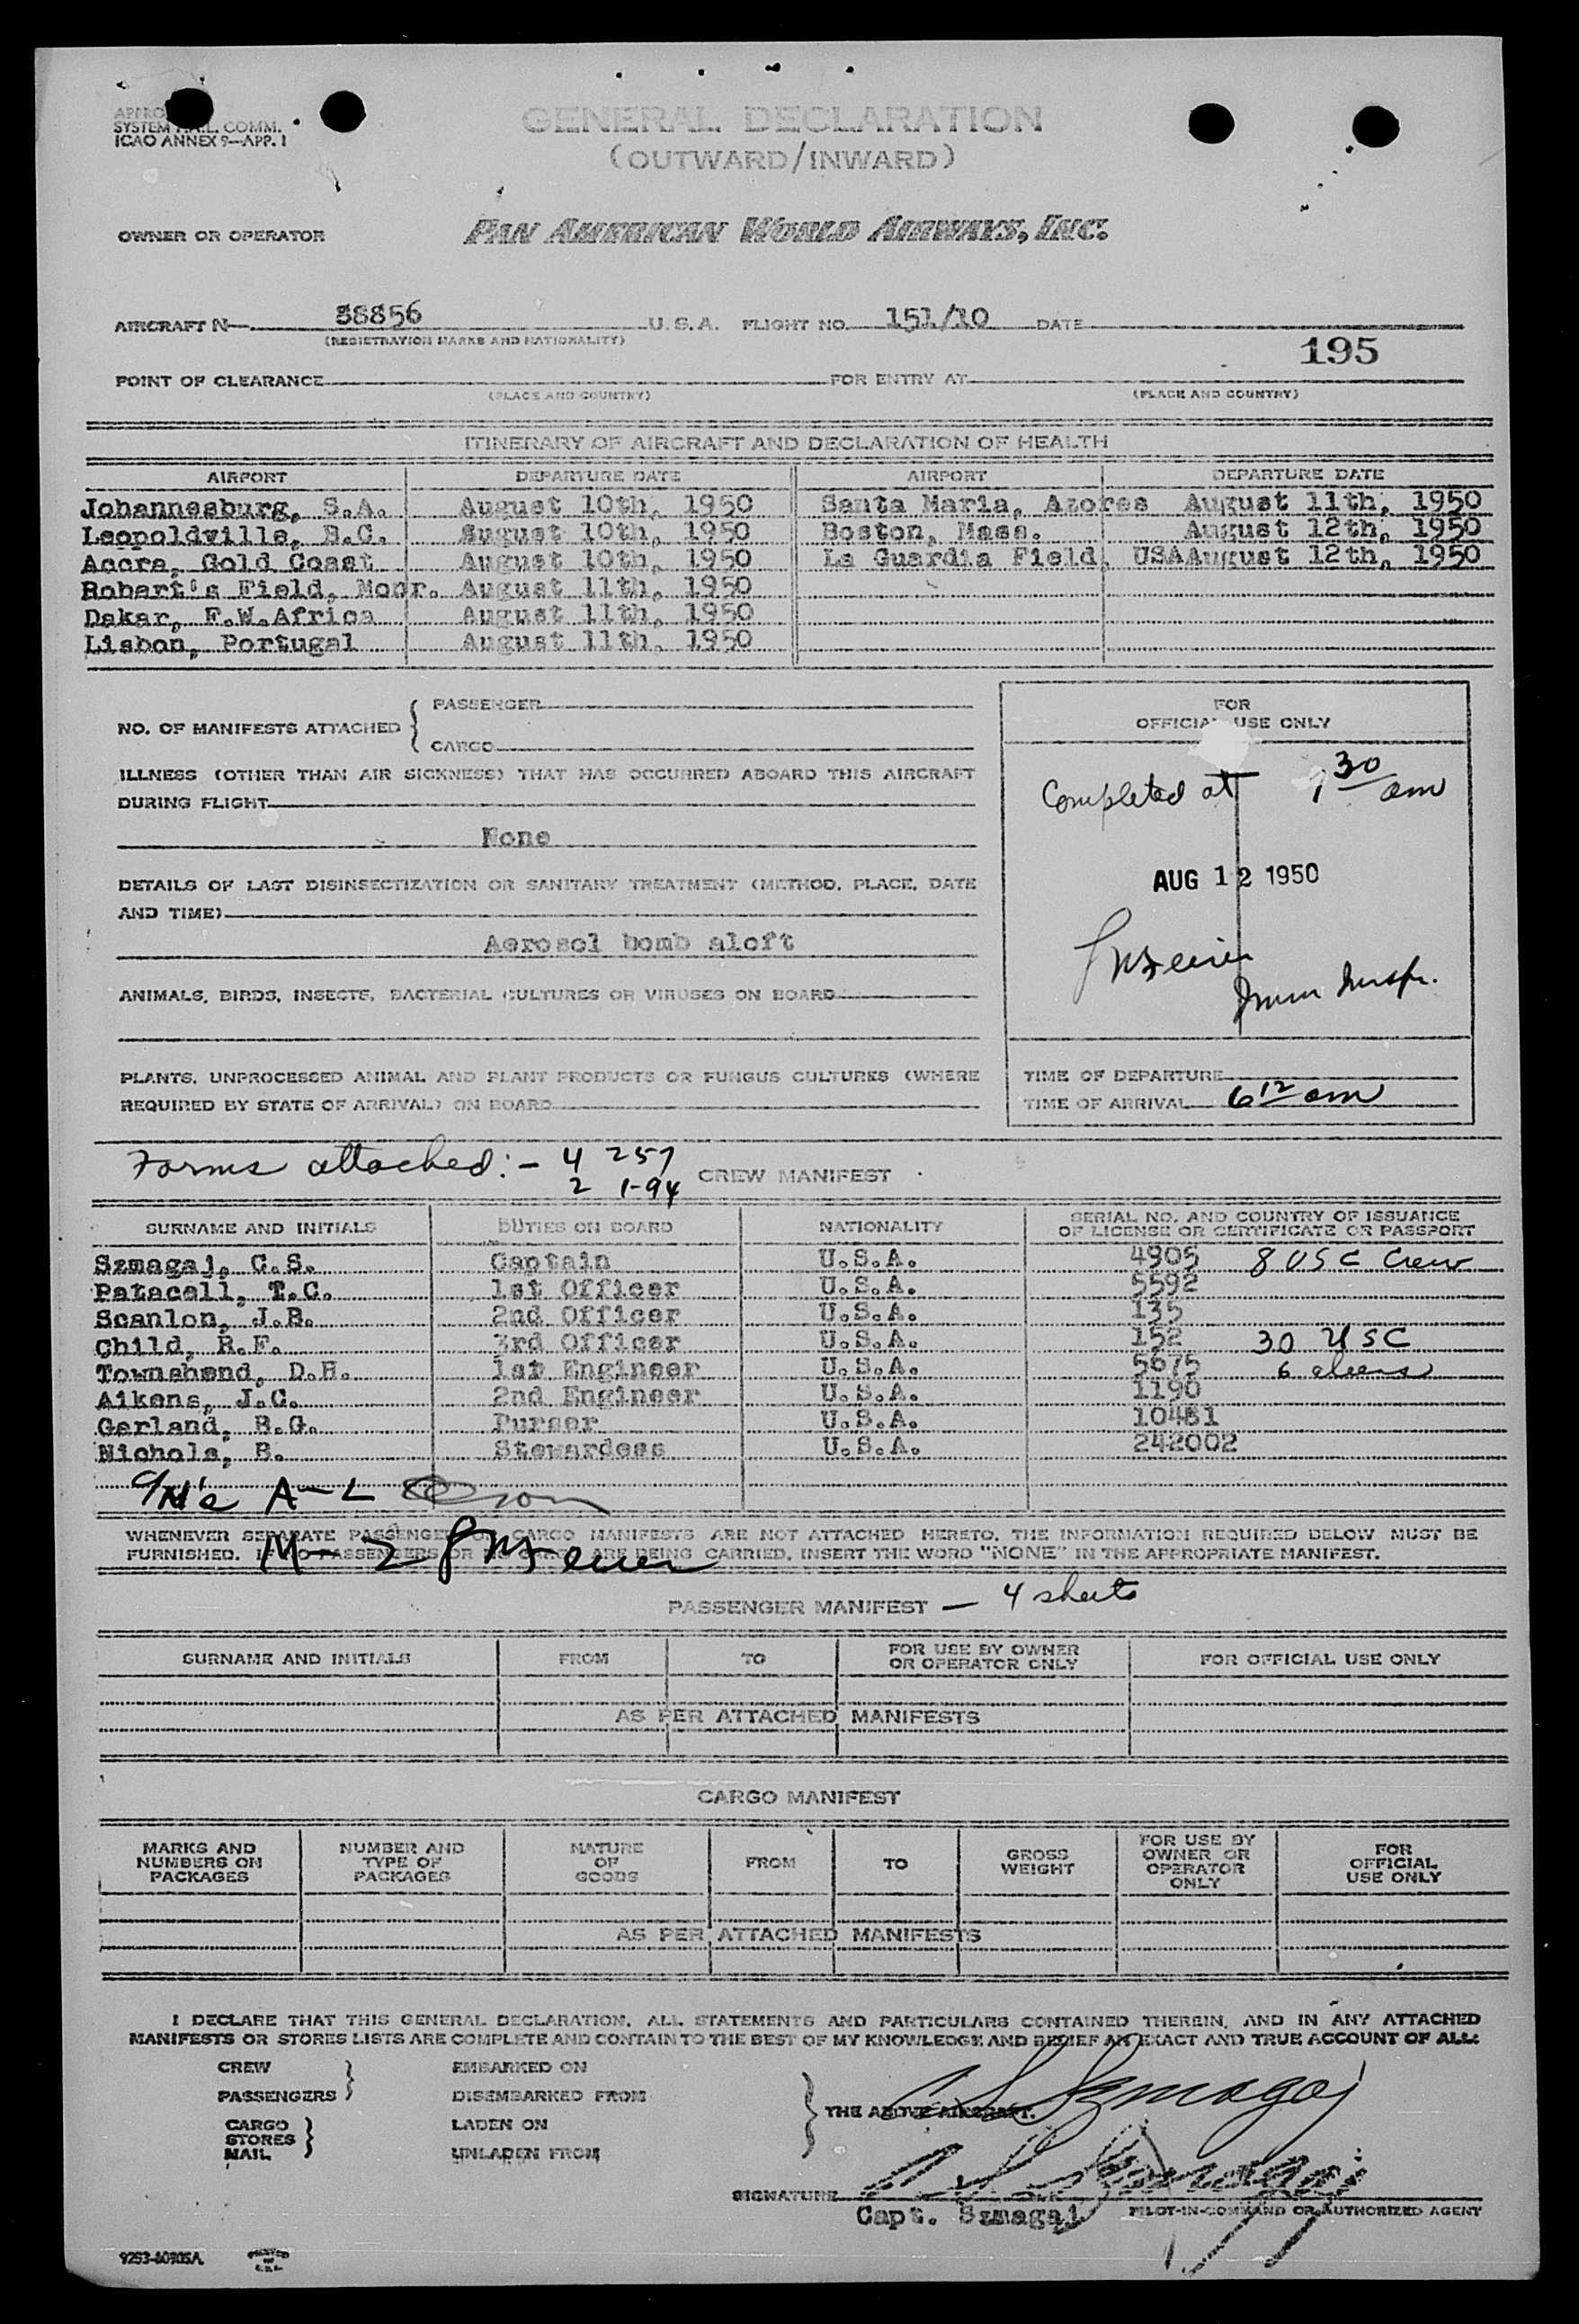 SYSTEM F.A.L. COMM.
ICAO ANNEX 9—APP. 1
GENERAL DECLARATION
(OUTWARD/INWARD)
OWNER OR OPERATOR PAN AMERICAN WORLD AIRWAYS, INC.
AIRCRAFT N— 88856 U.S.A. FLIGHT NO. 151/10 DATE
(REGISTRATION MARKS AND NATIONALITY)
195
POINT OF CLEARANCE FOR ENTRY AT
(PLACE AND COUNTRY) (PLACE AND COUNTRY)
ITINERARY OF AIRCRAFT AND DECLARATION OF HEALTH
AIRPORT DEPARTURE DATE AIRPORT DEPARTURE DATE
Johannesburg, S.A. August 10th, 1950 Santa Maria, Azores August 11th, 1950
Leopoldville, B.C. August 10th, 1950 Boston, Mass. August 12th, 1950
Accra, Gold Coast August 10th, 1950 La Guardia Field, USA August 12th, 1950
Robert's Field, Monr. August 11th, 1950
Dakar, F.W.Africa August 11th, 1950
Lisbon, Portugal August 11th, 1950
NO. OF MANIFESTS ATTACHED { PASSENGER
CARGO
FOR
OFFICIAL USE ONLY
ILLNESS (OTHER THAN AIR SICKNESS) THAT HAS OCCURRED ABOARD THIS AIRCRAFT
DURING FLIGHT
None
Completed at 7 30 am
DETAILS OF LAST DISINSECTIZATION OR SANITARY TREATMENT (METHOD, PLACE, DATE
AND TIME)
Aerosol bomb aloft
AUG 12 1950
Imm Inspr.
ANIMALS, BIRDS, INSECTS, BACTERIAL CULTURES OR VIRUSES ON BOARD
PLANTS, UNPROCESSED ANIMAL AND PLANT PRODUCTS OR FUNGUS CULTURES (WHERE
REQUIRED BY STATE OF ARRIVAL) ON BOARD
TIME OF DEPARTURE
TIME OF ARRIVAL 6 12 am
Forms attached:- 4 257
2 I-94
CREW MANIFEST
SURNAME AND INITIALS DUTIES ON BOARD NATIONALITY SERIAL NO. AND COUNTRY OF ISSUANCE
OF LICENSE OR CERTIFICATE OR PASSPORT
Szmagaj, C.S. Captain U.S.A. 4905 8 USC Crew
Patacall, T.C. 1st Officer U.S.A. 5592
Scanlon, J.B. 2nd Officer U.S.A. 135
Child, R.F. 3rd Officer U.S.A. 152 30 USC
Townshend, D.H. 1st Engineer U.S.A. 5675 6 aliens
Aikens, J.C. 2nd Engineer U.S.A. 1190
Garland, B.G. Purser U.S.A. 10481
Nichols, B. Stewardess U.S.A. 242002
A-L
M-Z
WHENEVER SEPARATE PASSENGER OR CARGO MANIFESTS ARE NOT ATTACHED HERETO, THE INFORMATION REQUIRED BELOW MUST BE
FURNISHED. IF NO PASSENGERS OR NO CARGO ARE BEING CARRIED, INSERT THE WORD "NONE" IN THE APPROPRIATE MANIFEST.
PASSENGER MANIFEST — 4 sheets
SURNAME AND INITIALS FROM TO FOR USE BY OWNER OR OPERATOR ONLY FOR OFFICIAL USE ONLY
AS PER ATTACHED MANIFESTS
CARGO MANIFEST
MARKS AND NUMBERS ON PACKAGES NUMBER AND TYPE OF PACKAGES NATURE OF GOODS FROM TO GROSS WEIGHT FOR USE BY OWNER OR OPERATOR ONLY FOR OFFICIAL USE ONLY
AS PER ATTACHED MANIFESTS
I DECLARE THAT THIS GENERAL DECLARATION, ALL STATEMENTS AND PARTICULARS CONTAINED THEREIN, AND IN ANY ATTACHED
MANIFESTS OR STORES LISTS ARE COMPLETE AND CONTAIN TO THE BEST OF MY KNOWLEDGE AND BELIEF AN EXACT AND TRUE ACCOUNT OF ALL:
CREW EMBARKED ON
PASSENGERS DISEMBARKED FROM
CARGO LADEN ON
STORES
MAIL UNLADEN FROM
THE ABOVE AIRCRAFT.
C S Szmagaj
SIGNATURE C S Szmagaj
Capt. Szmagaj PILOT-IN-COMMAND OR AUTHORIZED AGENT
PRINTED IN U.S.A.